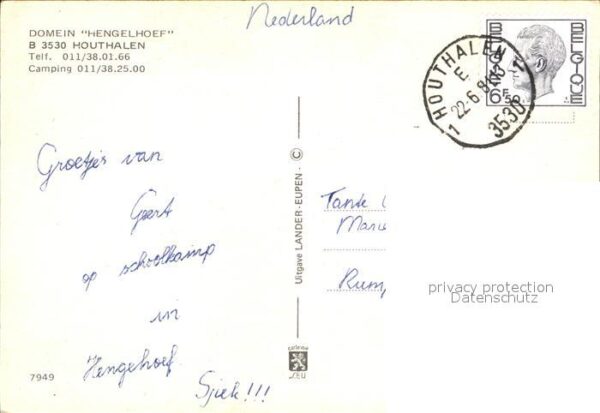 Nederland
DOMEIN "HENGELHOEF"
B 3530 HOUTHALEN
Telf. 011/38.01.66
Camping 011/38.25.00
BELGIQUE
BELGIE
6F50
1 HOUTHALEN 1
E
22-6
3530
Groetjes van
Geert
op schoolkamp
in
Hengehoef.
Sjiek!!!
Uitgave LANDER-EUPEN - ©
Tante
Rum
privacy protection
Datenschutz
7949